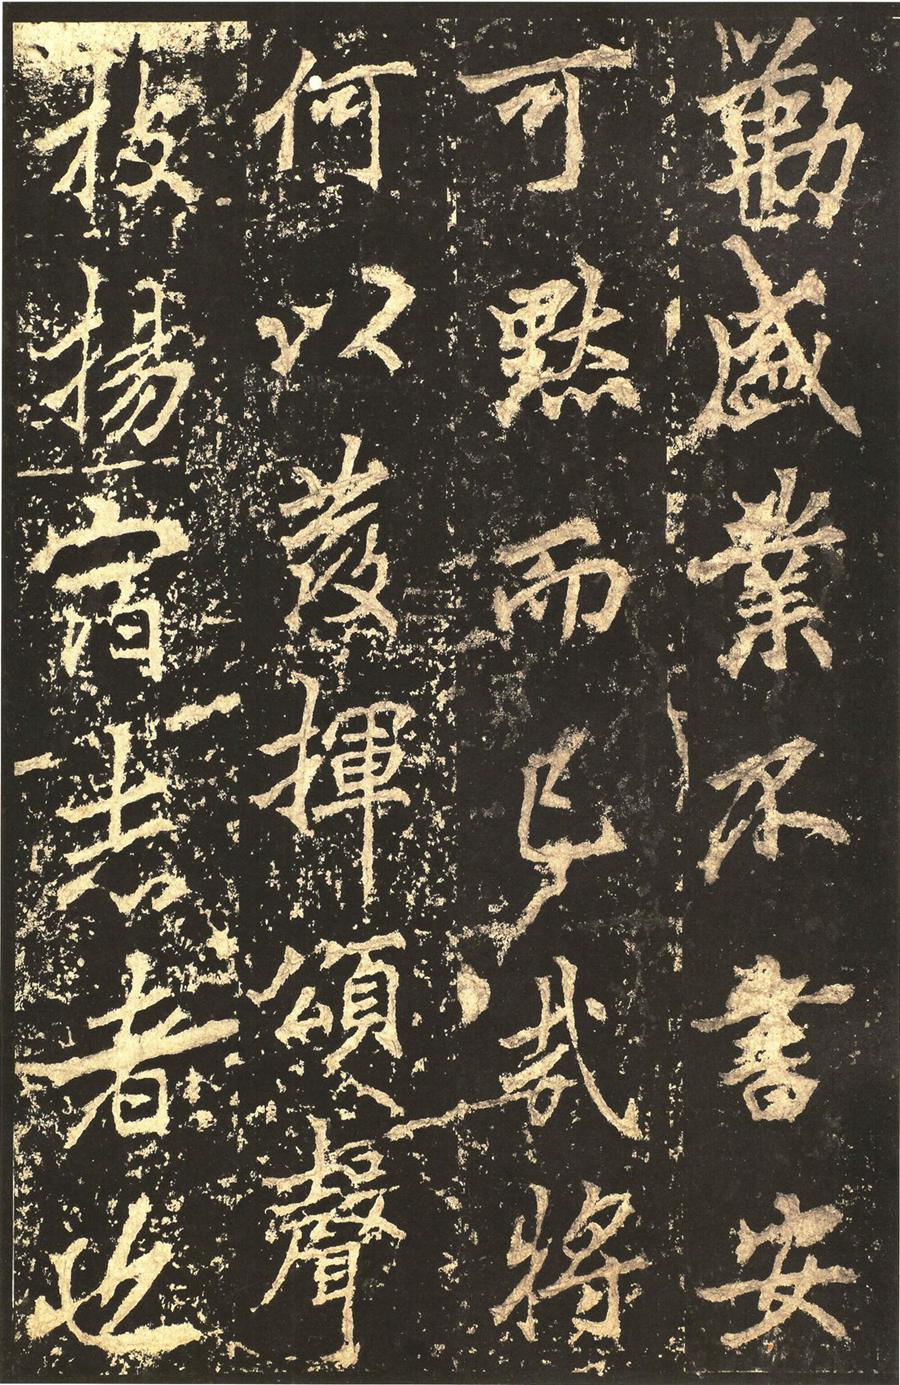 勳盛業不書安
可默而已哉將
何以發揮頌聲
披揚宿志者也